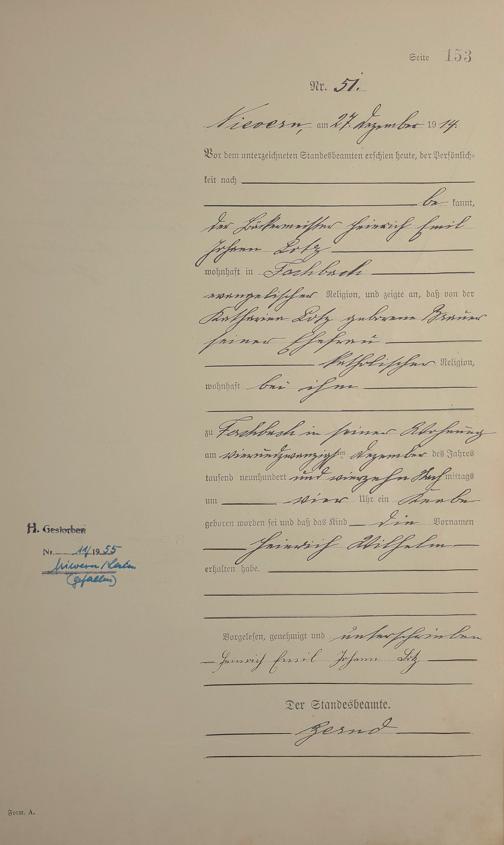 Seite 153
Nr. 51.
Nievern, am 27 Dezember 1914.
Vor dem unterzeichneten Standesbeamten erschien heute, der Persönlich-
keit nach
be kannt,
der Bäckermeister Heinrich Emil
Johann Lotz
wohnhaft in Fachbach
evangelischer Religion, und zeigte an, daß von der
Katharina Lotz geborene Brauer
seiner Ehefrau
katholischer Religion,
wohnhaft bei ihm
zu Fachbach in seiner Wohnung
am vierundzwanzigsten Dezember des Jahres
tausend neunhundert und vierzehn Nach mittags
um vier Uhr ein Knabe
geboren worden sei und daß das Kind die Vornamen
Heinrich Wilhelm
erhalten habe.
H. Gestorben
Nr. 14/1955
Nievern/Lahn
(gefallen)
Vorgelesen, genehmigt und unterschrieben
Heinrich Emil Johann Lotz
Der Standesbeamte.
Form. A.